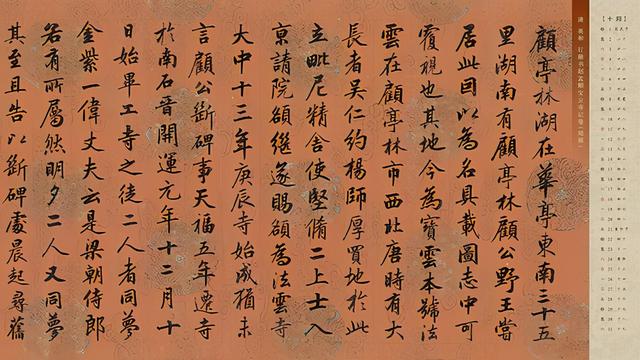 清 英和 行楷书赵孟頫宝云寺记卷（局部）
顧亭林湖在華亭東南三十五
里湖南有顧亭林顧公野王嘗
居此因以為名具載圖志中可
覆視也其地今為寳雲本號法
雲在顧亭林市西北唐時有大
長者吴仁約楊師厚買地於此
立毗尼精舍使堅脩二上士入
京請院額繼遂賜額為法雲寺
大中十三年庚辰寺始成猶未
言顧公斷碑事天福五年遷寺
於南石晉開運元年十二月十
日始畢工寺之徒二人者同夢
金紫一偉丈夫云是梁朝侍郎
若有所屬然明夕二人又同夢
其至且告以斷碑處晨起尋舊